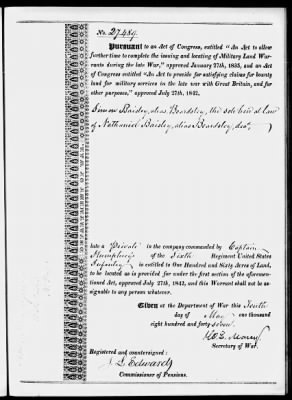 No. 27,489.
Pursuant to an Act of Congress, entitled "An Act to allow
further time to complete the issuing and locating of Military Land War-
rants during the late War," approved January 27th, 1835, and an Act
of Congress entitled "An Act to provide for satisfying claims for bounty
land for military services in the late war with Great Britain, and for
other purposes," approved July 27th, 1842,
Baisley, alias Beardsley, the sole heir at law
of Nathaniel Baisley, alias Beardsley, decd,
late a Private in the company commanded by Captain
Humphreys of the Sixth Regiment United States
Infantry is entitled to One Hundred and Sixty Acres of Land,
to be located as is provided for under the first section of the aforemen-
tioned Act, approved July 27th, 1842, and this Warrant shall not be as-
signable to any person whatever.
Given at the Department of War this Tenth
day of May one thousand
eight hundred and forty-seven.
Secretary of War.
Registered and countersigned:
J. L. Edwards
Commissioner of Pensions.
DEPARTMENT OF WAR.